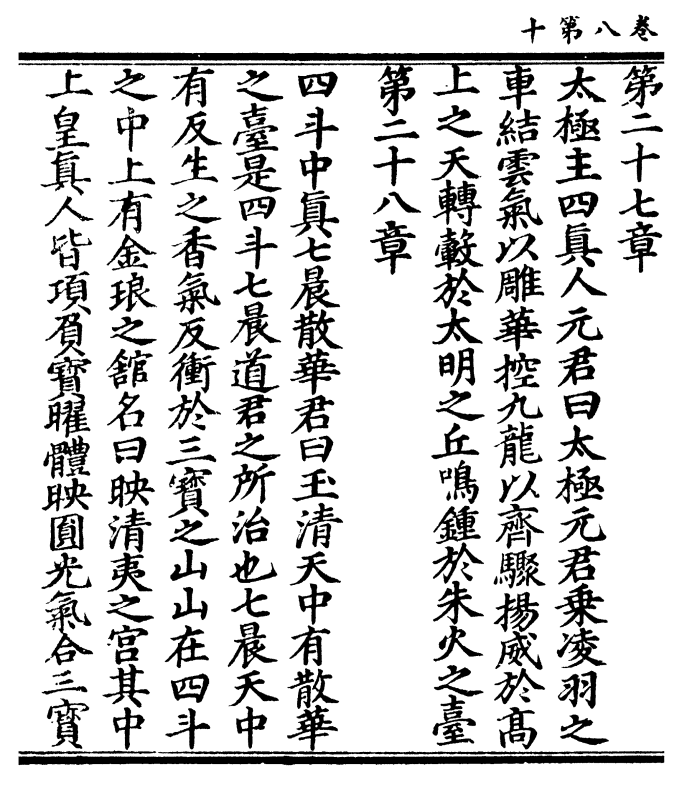 卷八第十
第二十七章
太極主四眞人元君曰太極元君乗凌羽之
車結雲氣以雕華控九龍以齊驟揚威於髙
上之天轉轂於太明之丘鳴鍾於朱火之臺
第二十八章
四斗中眞七晨散華君曰玉清天中有散華
之臺是四斗七晨道君之所治也七晨天中
有反生之香氣反衝於三寳之山山在四斗
之中上有金琅之舘名曰映清夷之宮其中
上皇眞人皆項負寳曜體映圓光氣合三寳